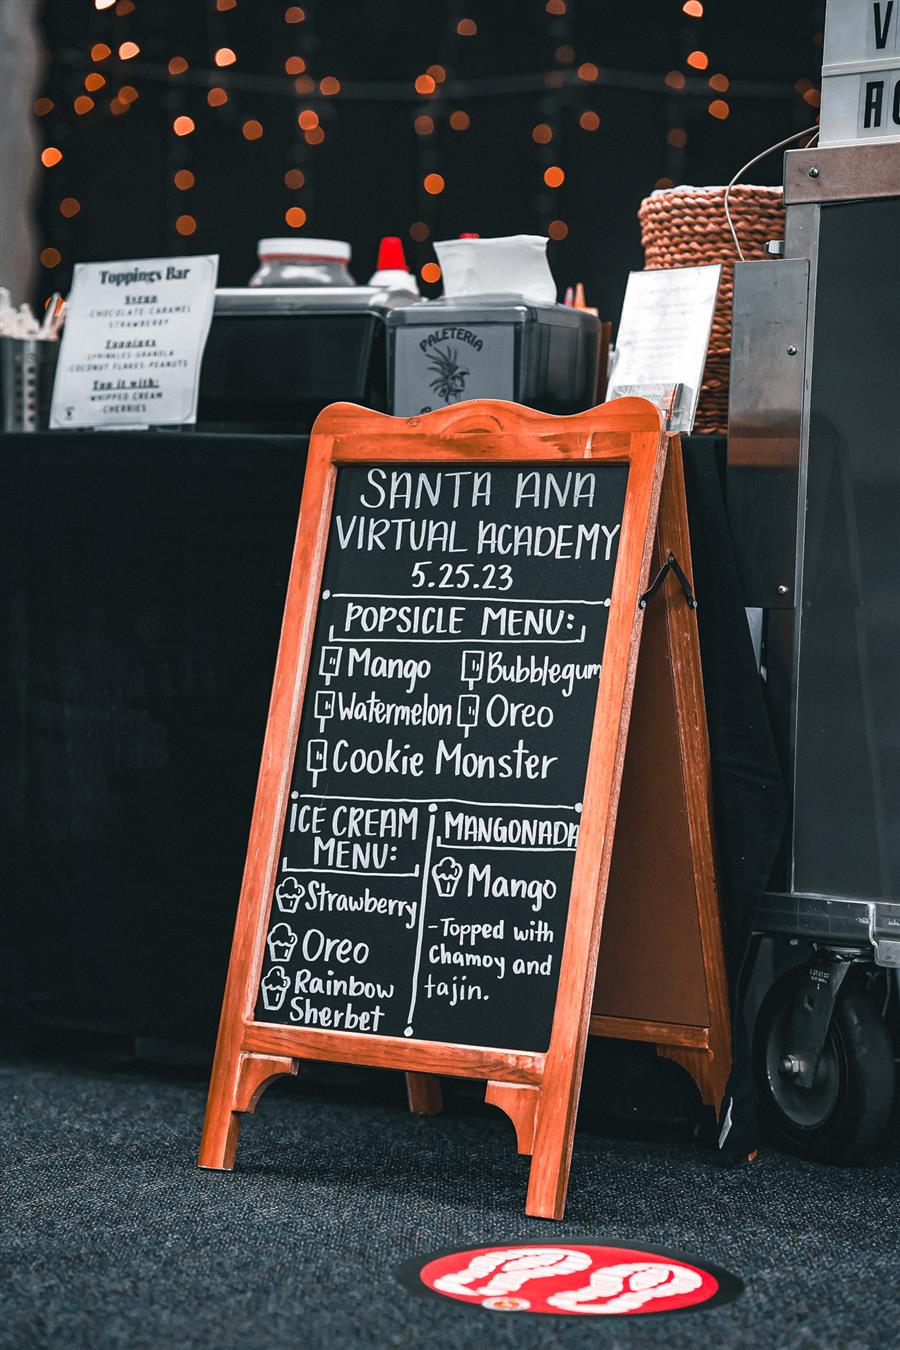 V
AC
Toppings Bar
Syrup
-CHOCOLATE-CARAMEL
-STRAWBERRY
Toppings
-SPRINKLES-GRANOLA
-COCONUT FLAKES-PEANUTS
Top it with:
-WHIPPED CREAM
CHERRIES
PALETERIA
SANTA ANA
VIRTUAL ACADEMY
5.25.23
POPSICLE MENU:
Mango Bubblegum
Watermelon Oreo
Cookie Monster
ICE CREAM
MENU:
Strawberry
Oreo
Rainbow
Sherbet
MANGONADA
Mango
-Topped with
Chamoy and
tajin.